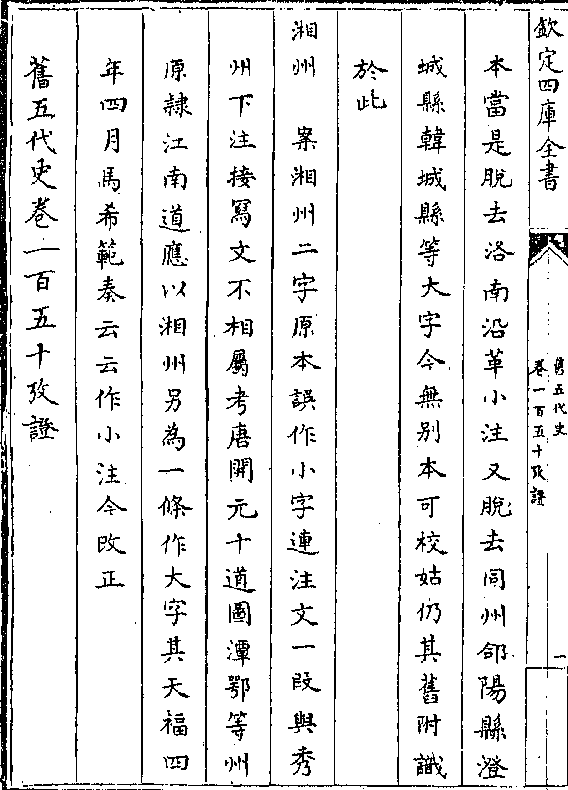 欽定四庫全書
舊五代史
卷一百五十攷證
一
本當是脫去洛南沿革小注又脫去同州郃陽縣澄
城縣韓城縣等大字今無別本可校姑仍其舊附識
於此
湘州　案湘州二字原本誤作小字連注文一段與秀
州下注接寫文不相屬考唐開元十道圖潭鄂等州
原隸江南道應以湘州另為一條作大字其天福四
年四月馬希範奏云云作小注今改正
舊五代史卷一百五十攷證